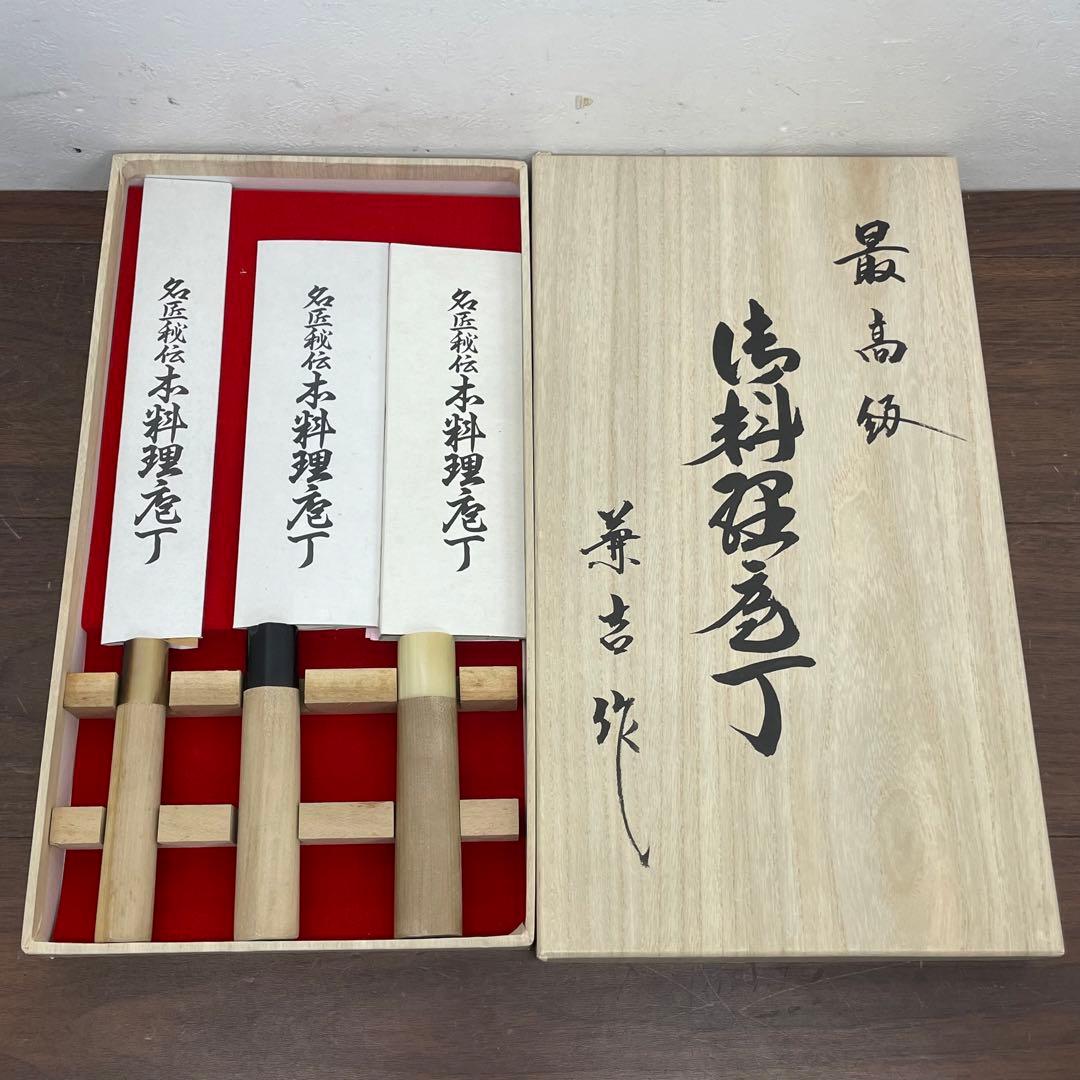 名匠秘伝本料理庖丁
名匠秘伝本料理庖丁
名匠秘伝本料理庖丁
最高級
御料理庖丁
兼吉作